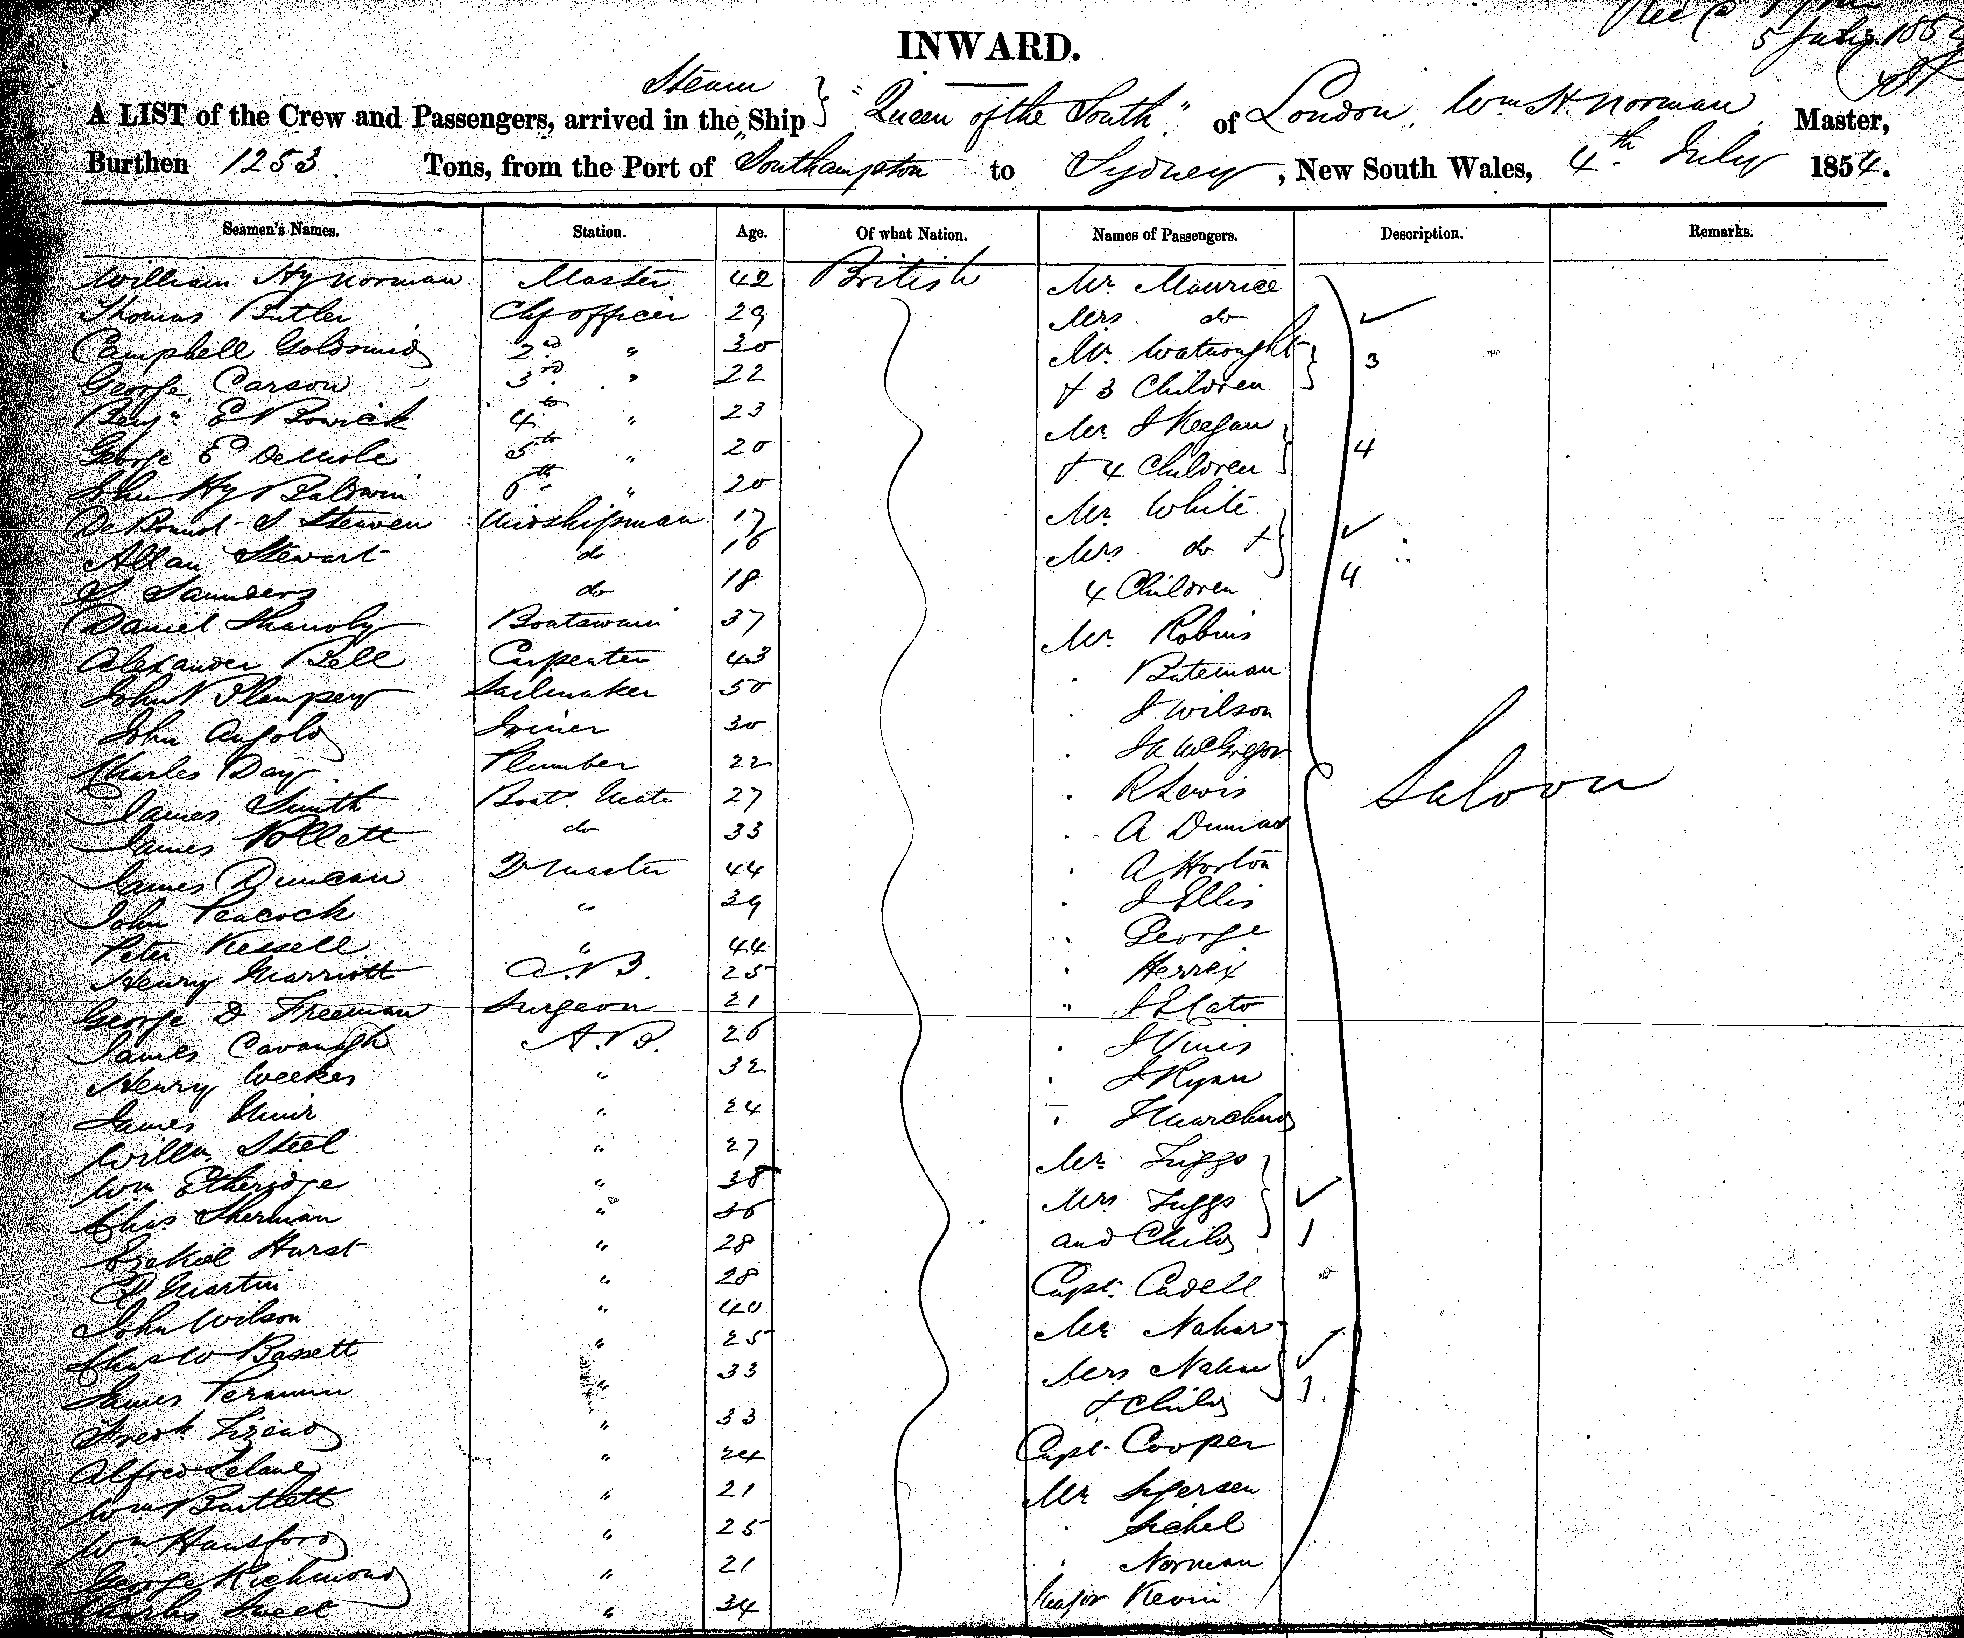 5 July 185
INWARD.
Steam
A LIST of the Crew and Passengers, arrived in the Ship } "Queen of the South" of London, Wm H. Norman Master,
Burthen 1253 Tons, from the Port of Southampton to Sydney, New South Wales, 4th July 1854.
Seamen's Names. Station. Age. Of what Nation. Names of Passengers. Description. Remarks.
William Hy Norman Master 42 British Mr. Maurice
Thomas Butler Chf officer 29 Mrs do ✓
Campbell Goldsmid 2nd " 30 Mr. 3
George Carson 3rd " 22 + 3 Children
Benjn E Bowick 4th " 23 Mr J Keegan
George Ed DeMole 5th " 20 + 4 Children 4
John Hy Baldwin 6th " 20 Mr White
Midshipman 17 Mrs do + ✓
Allan Stewart do 16 4 Children 4
S Saunders do 18 Mr Robins
Daniel Boatswain 37 . Bateman
Alexander Bell Carpenter 43 . J Wilson
John Sailmaker 50 . McGregor
John Angold Joiner 30 . R Lewis Saloon
Charles Day Plumber 22 . A
James Smith Boats. Mate 27 . A Horton
James Pollett do 33 . J Ellis
James Duncan Qr Master 44 . George
John Peacock " 39 . Herrex
Peter Kessell " 44 " Cato
Henry Marriott A.B. 25 . J Vines
George D Freeman Surgeon 21 . J Ryan
James Cavanagh A.B. 26 .
Henry Weekes " 32 Mr Tuggs
James Muir " 24 Mrs Tuggs ✓
Willm Steel " 27 and Child 1
Wm Etheridge " 38 Capt. Cadell
Chas Sherman " 36 Mr
Ezekiel Hurst " 28 Mrs ✓
D Martin " 28 + Child 1.
John Wilson " 40 Capt. Cooper
W Bassett " 25 Mr
James " 33 . Sichel
Fredk " 33 . Norman
Alfred " 24 Major
Wm Bartlett " 21
Wm Hansford " 25
George Richmond " 21
Charles Sweet " 34